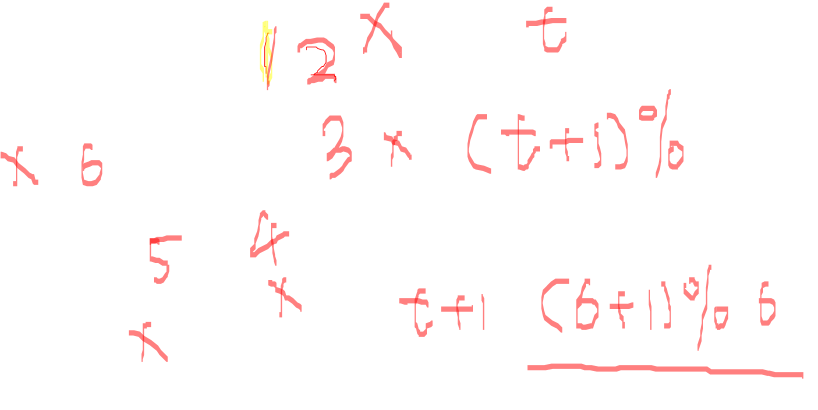 1 2 x t
x 6 3 x (t+1)%
5 4
x x t+1 (6+1)%6